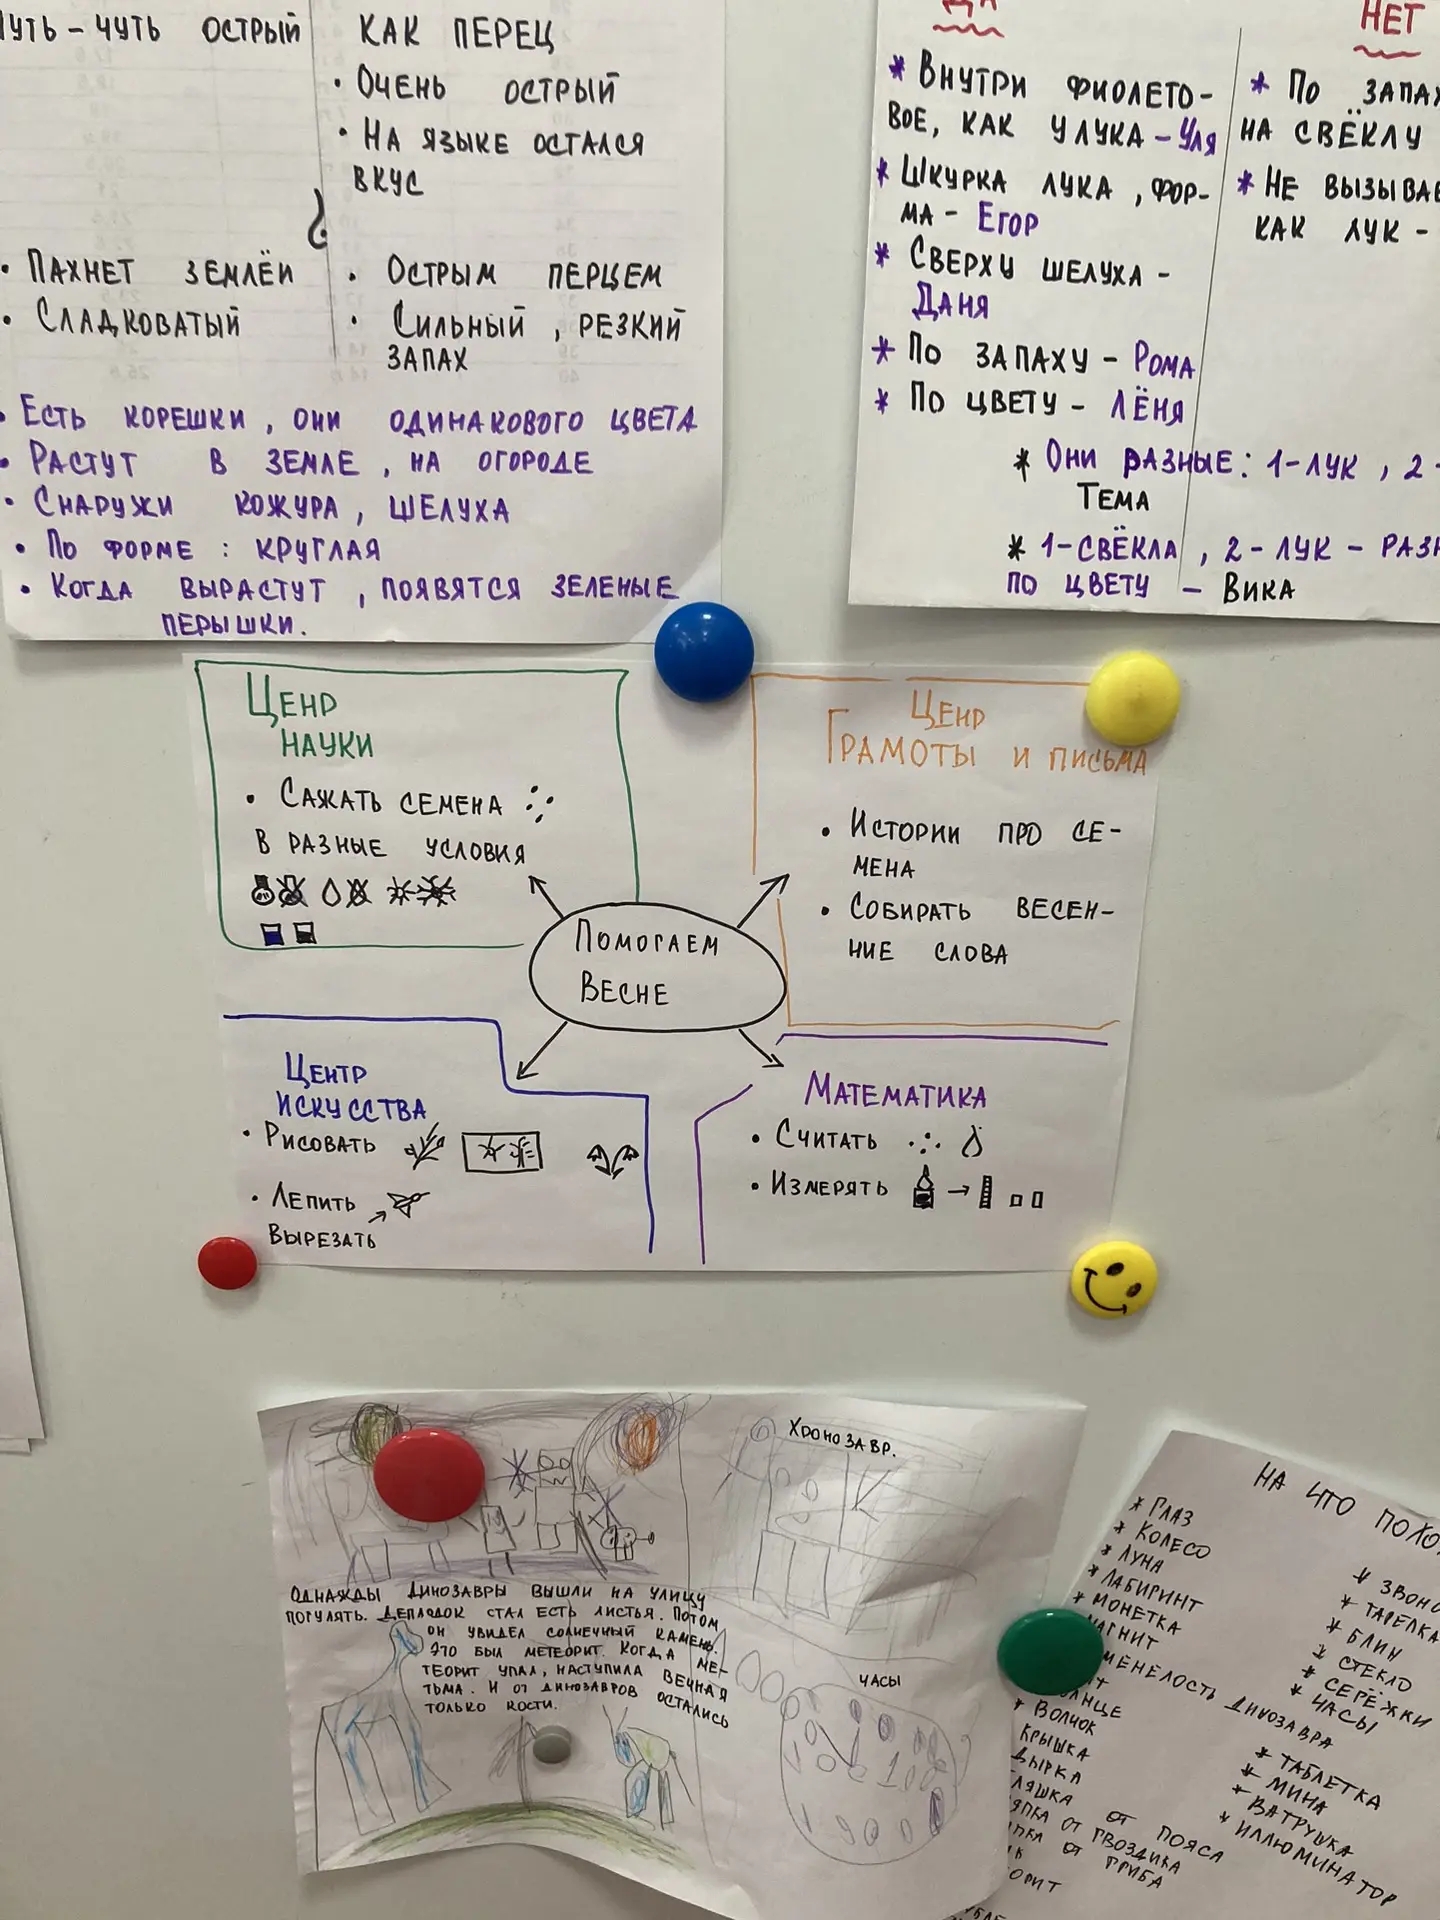 ЧУТЬ-ЧУТЬ ОСТРЫЙ
• ПАХНЕТ ЗЕМЛЁЙ
• СЛАДКОВАТЫЙ
КАК ПЕРЕЦ
• ОЧЕНЬ ОСТРЫЙ
• НА ЯЗЫКЕ ОСТАЛСЯ
ВКУС
• ОСТРЫМ ПЕРЦЕМ
• СИЛЬНЫЙ, РЕЗКИЙ
ЗАПАХ
• ЕСТЬ КОРЕШКИ, ОНИ ОДИНАКОВОГО ЦВЕТА
• РАСТУТ В ЗЕМЛЕ, НА ОГОРОДЕ
• СНАРУЖИ КОЖУРА, ШЕЛУХА
• ПО ФОРМЕ: КРУГЛАЯ
• КОГДА ВЫРАСТУТ, ПОЯВЯТСЯ ЗЕЛЕНЫЕ
ПЕРЫШКИ.
ДА
* ВНУТРИ ФИОЛЕТО-
ВОЕ, КАК У ЛУКА - УЛЯ
* ШКУРКА ЛУКА, ФОР-
МА - ЕГОР
* СВЕРХУ ШЕЛУХА -
ДАНЯ
* ПО ЗАПАХУ - РОМА
* ПО ЦВЕТУ - ЛЁНЯ
НЕТ
* ПО ЗАПАХ
НА СВЁКЛУ
* НЕ ВЫЗЫВАЕ
КАК ЛУК -
* ОНИ РАЗНЫЕ: 1-ЛУК, 2-
ТЕМА
* 1-СВЁКЛА, 2-ЛУК - РАЗН
ПО ЦВЕТУ - ВИКА
ЦЕНР
НАУКИ
• САЖАТЬ СЕМЕНА
В РАЗНЫЕ УСЛОВИЯ
ЦЕНР
ГРАМОТЫ И ПИСЬМА
• ИСТОРИИ ПРО СЕ-
МЕНА
• СОБИРАТЬ ВЕСЕН-
НИЕ СЛОВА
ПОМОГАЕМ
ВЕСНЕ
ЦЕНТР
ИСКУССТВА
• РИСОВАТЬ
• ЛЕПИТЬ
ВЫРЕЗАТЬ
МАТЕМАТИКА
• СЧИТАТЬ
• ИЗМЕРЯТЬ
ХРОНОЗАВР.
ОДНАЖДЫ ДИНОЗАВРЫ ВЫШЛИ НА УЛИЦУ
ПОГУЛЯТЬ. ДЕПЛОДОК СТАЛ ЕСТЬ ЛИСТЬЯ. ПОТОМ
ОН УВИДЕЛ СОЛНЕЧНЫЙ КАМЕНЬ.
ЭТО БЫЛ МЕТЕОРИТ. КОГДА МЕ-
ТЕОРИТ УПАЛ, НАСТУПИЛА ВЕЧНАЯ
ТЬМА. И ОТ ДИНОЗАВРОВ ОСТАЛИСЬ
ТОЛЬКО КОСТИ.
ЧАСЫ
НА ЧТО ПОХО
* ГЛАЗ
* КОЛЕСО
* ЛУНА
* ЛАБИРИНТ
* МОНЕТКА
МАГНИТ
МЕНЕЛОСТЬ ДИНОЗАВРА
ЛНЦЕ
* ВОЛЧОК
КРЫШКА
ДЫРКА
ЛЯШКА ОТ ПОЯСА
ЯПКА ОТ ГВОЗДИКА
ПКА ОТ ГРИБА
ОРИТ
* ЗВОНО
* ТАРЕЛКА
* БЛИН
* СТЕКЛО
* СЕРЁЖКИ
* ЧАСЫ
* ТАБЛЕТКА
* МИНА
* ВАТРУШКА
* ИЛЛЮМИНАТОР